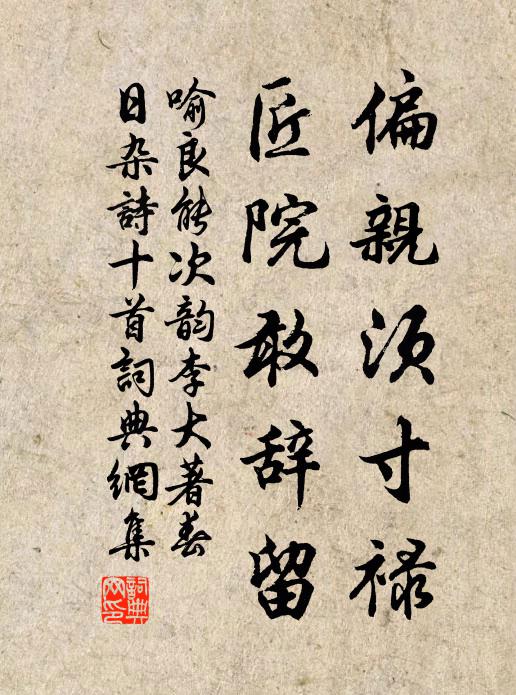 偏親須寸禄
匠院敢辞留
喻良能次韵李大著春
日杂詩十首詞典網集
詞典